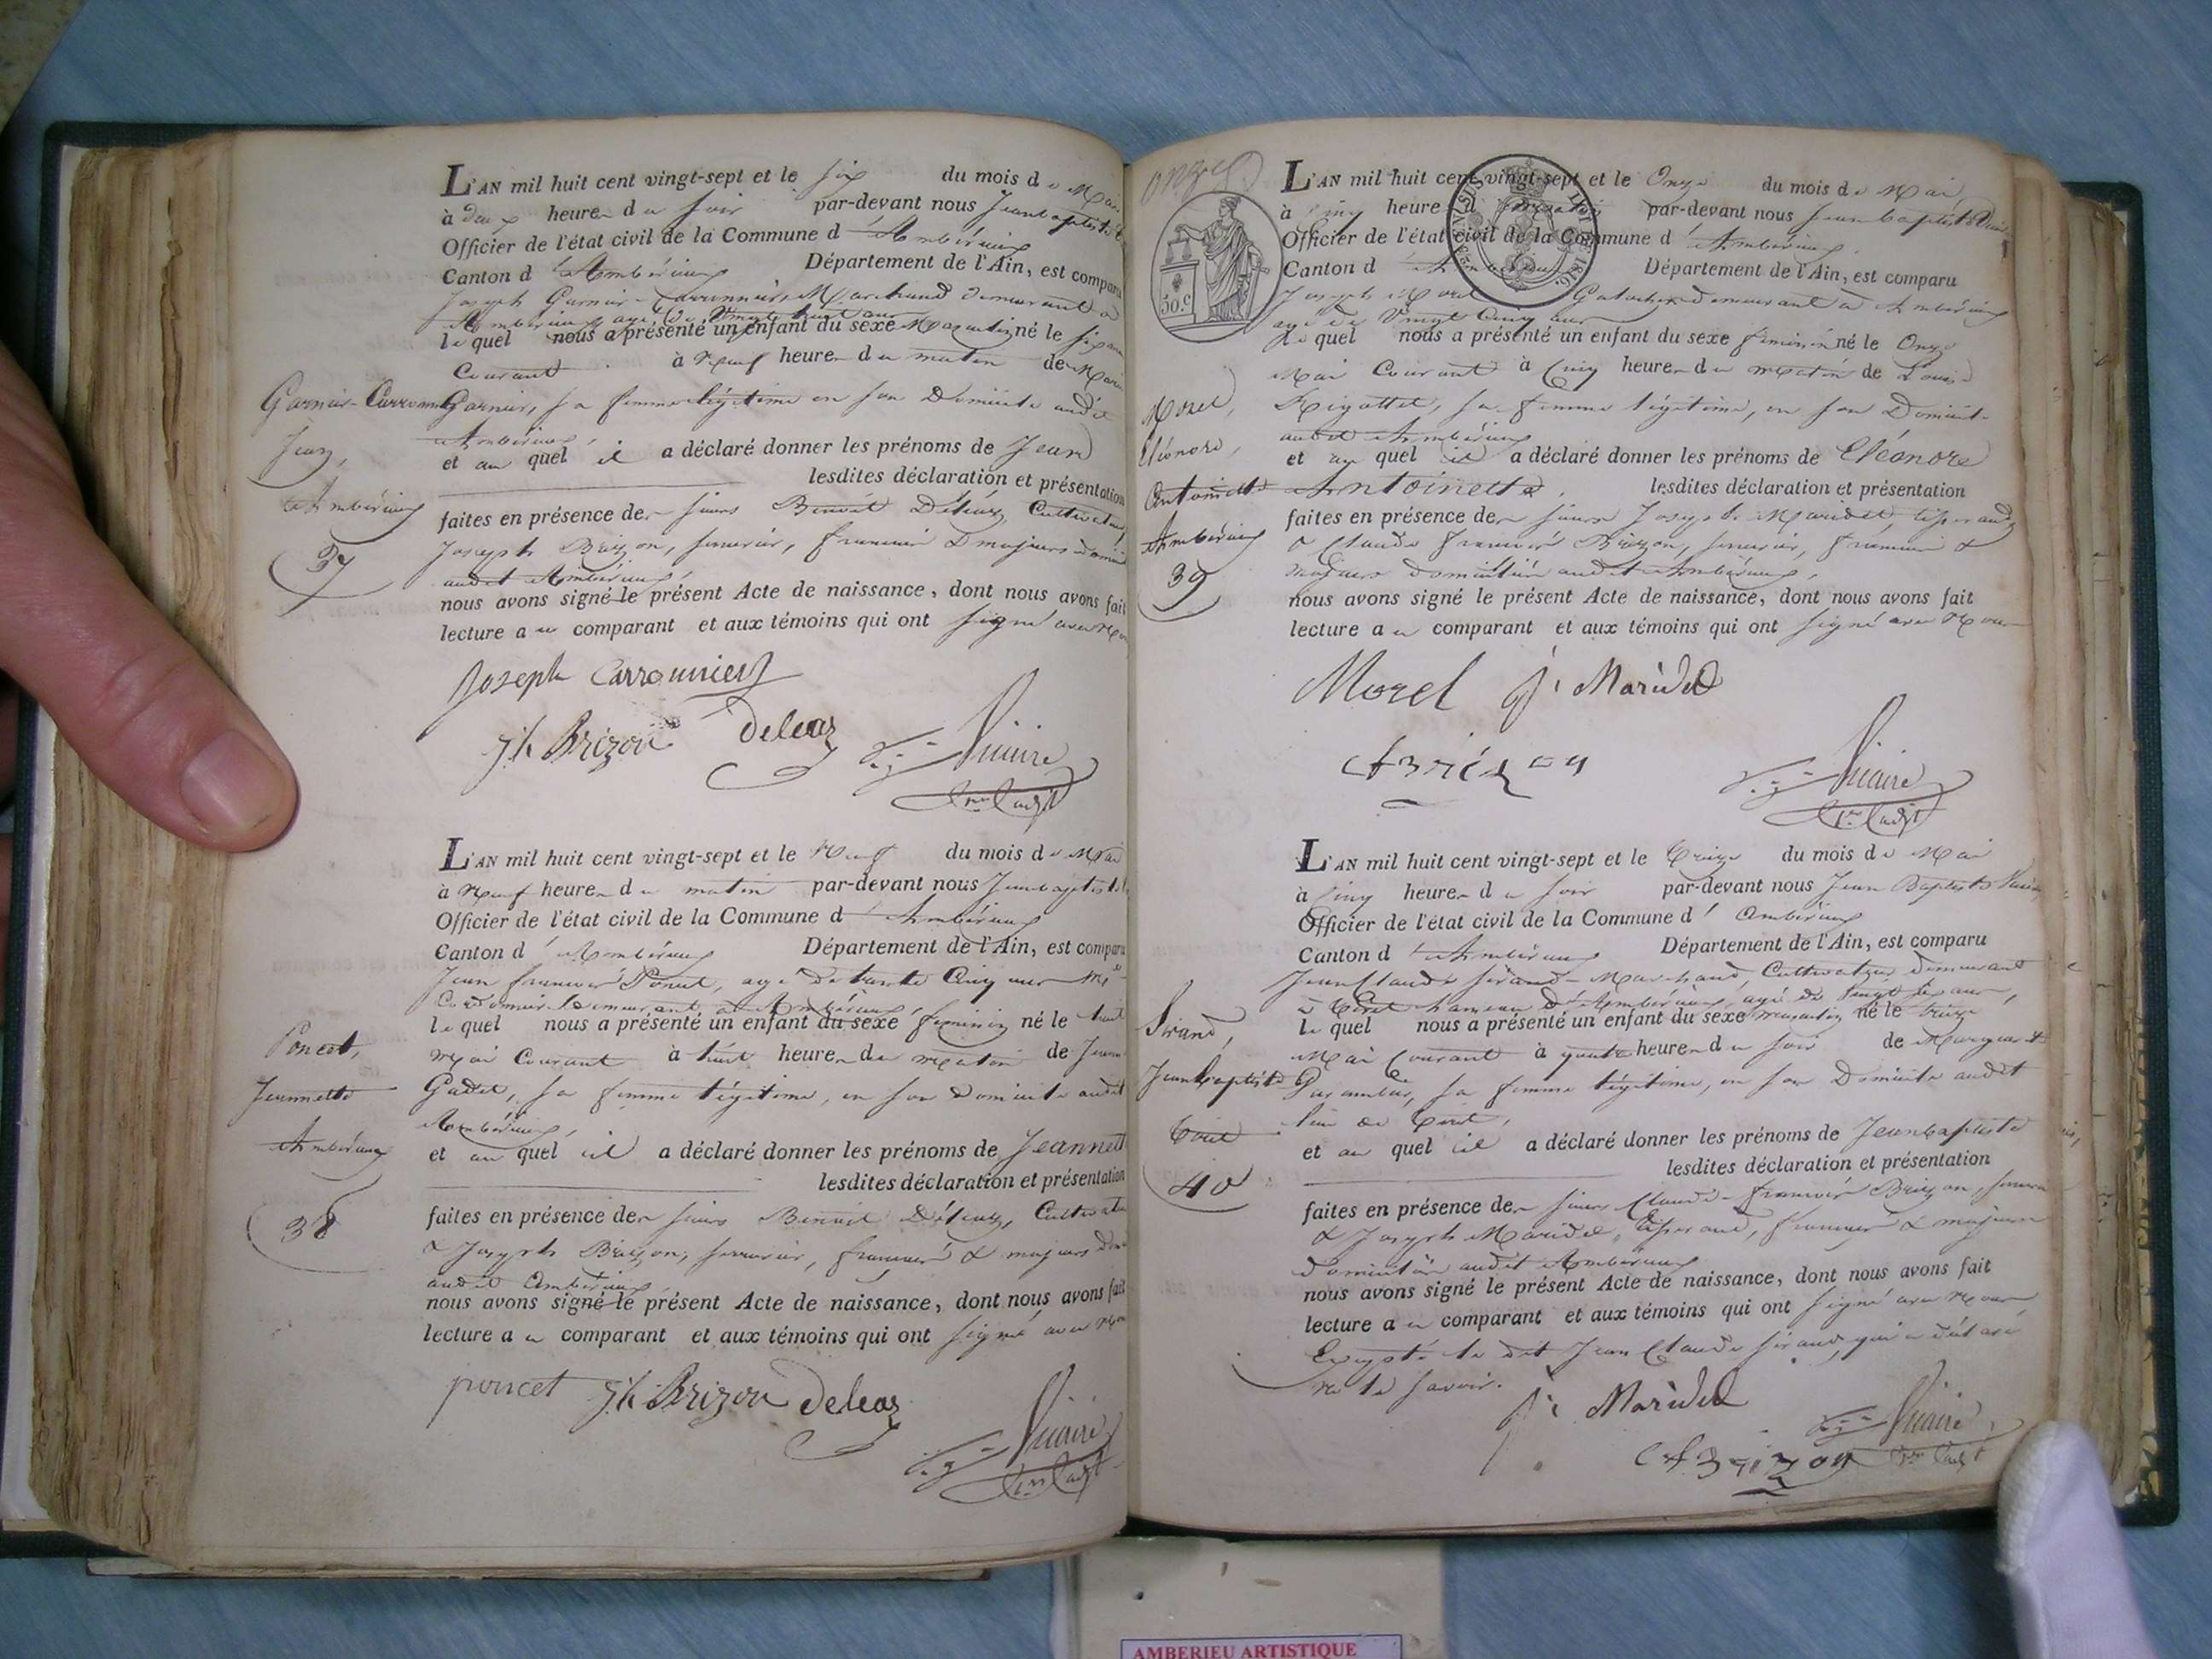 L'AN mil huit cent vingt-sept et le six du mois de Mai
à deux heures du soir par-devant nous Jeanbaptiste
Officier de l'état civil de la Commune d'Ambérieux
Canton d'Ambérieux Département de l'Ain, est comparu
Joseph Garnier-Carronnier, Marchand demeurant à
Ambérieux agé de Vingt huit ans
lequel nous a présenté un enfant du sexe Masculin né le six
Courant à Neuf heures du matin de Marie
Garnier, sa femme légitime en son Domicile audit
Ambérieux,
et au quel il a déclaré donner les prénoms de Jean
lesdites déclaration et présentation
faites en présence des sieurs Benoît Déléaz, Cultivateur
Joseph Brizon, serrurier, francais & majeurs
audit Ambérieux,
nous avons signé le présent Acte de naissance, dont nous avons fait
lecture au comparant et aux témoins qui ont signé avec Nous
Garnier-Carronnier
Jean,
Ambérieux
37
Joseph Carronnier
Jh Brizon Deleaz Vicaire
L'AN mil huit cent vingt-sept et le Neuf du mois de Mai
à Neuf heures du matin par-devant nous Jeanbaptiste
Officier de l'état civil de la Commune d'Ambérieux
Canton d'Ambérieux Département de l'Ain, est comparu
Jean francois Poncet, agé de trente Cinq ans
Cordonnier demeurant à Ambérieux,
lequel nous a présenté un enfant du sexe feminin né le huit
mai Courant à huit heures du matin de Jeanne
Gadet, sa femme légitime, en son domicile audit
Ambérieux,
et au quel il a déclaré donner les prénoms de Jeannette
lesdites déclaration et présentation
faites en présence des sieurs Benoit Déléaz, Cultivateur
& Joseph Brizon, serrurier, francais & majeurs
audit Ambérieux
nous avons signé le présent Acte de naissance, dont nous avons fait
lecture au comparant et aux témoins qui ont signé avec Nous
Poncet,
Jeannette
Ambérieux
38
poncet Jh Brizon Deleaz
Vicaire
onze
50.c
L'AN mil huit cent vingt-sept et le Onze du mois de Mai
à Cinq heures du matin par-devant nous Jeanbaptiste Vicaire
Officier de l'état civil de la Commune d'Ambérieux
Canton d'Ambérieux Département de l'Ain, est comparu
Joseph Morel Galochier demeurant à Ambérieux
agé de Vingt Cinq ans
lequel nous a présenté un enfant du sexe féminin né le Onze
Mai Courant à Cinq heures du matin de Louise
Rigottet, sa femme légitime, en son Domicile
audit Ambérieux
et au quel il a déclaré donner les prénoms de Eléonore
Antoinette, lesdites déclaration et présentation
faites en présence des sieurs Joseph Maridet, tisserand
& Claude francois Brizon, serrurier, francais &
majeurs domiciliés audit Ambérieux,
nous avons signé le présent Acte de naissance, dont nous avons fait
lecture au comparant et aux témoins qui ont signé avec Nous
Morel,
Eléonore,
Antoinette
Ambérieux
39
Morel J. Maridet
Brizon Vicaire
L'AN mil huit cent vingt-sept et le treize du mois de Mai
à Cinq heures du soir par-devant nous Jean Baptiste Vicaire
Officier de l'état civil de la Commune d'Ambérieux
Canton d'Ambérieux Département de l'Ain, est comparu
Jean Claude Sirand-Marchand, Cultivateur demeurant
à Tiret hameau d'Ambérieux, agé de Vingt six ans,
lequel nous a présenté un enfant du sexe masculin né le treize
Mai Courant à quatre heures du soir de Marguerite
sa femme légitime, en son Domicile audit
lieu de Tiret,
et au quel il a déclaré donner les prénoms de Jeanbaptiste
lesdites déclaration et présentation
faites en présence des sieurs Claude-francois Brizon, serrurier
& Joseph Maridet, tisserand, francais & majeurs
domiciliés audit Ambérieux
nous avons signé le présent Acte de naissance, dont nous avons fait
lecture au comparant et aux témoins qui ont signé avec Nous
Excepté le dit Jean Claude Sirand qui a déclaré
ne le savoir.
Sirand,
Jeanbaptiste
Tiret
40
J. Maridet
Vicaire
Brizon
AMBERIEU ARTISTIQUE